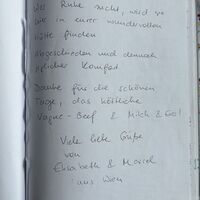 Wer Ruhe sucht, wird sie
hier in eurer wundervollen
Hütte finden
Abgeschieden und dennoch
jeglicher Komfort
Danke für die schönen
Tage, das köstliche
Beef & Milch & Co!
Viele liebe Grüße
von
Elisabeth & Marcel
aus Wien